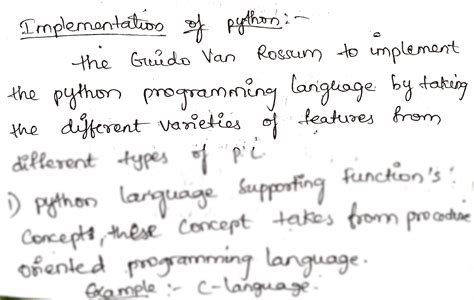 Implementation of python:-
the Guido Van Rossum to implement
the python programming language by taking
the different varieties of features from
different types of
1) python language supporting function's:
Concepts, these concept takes from procedure
oriented programming language.
Example :- C-language.